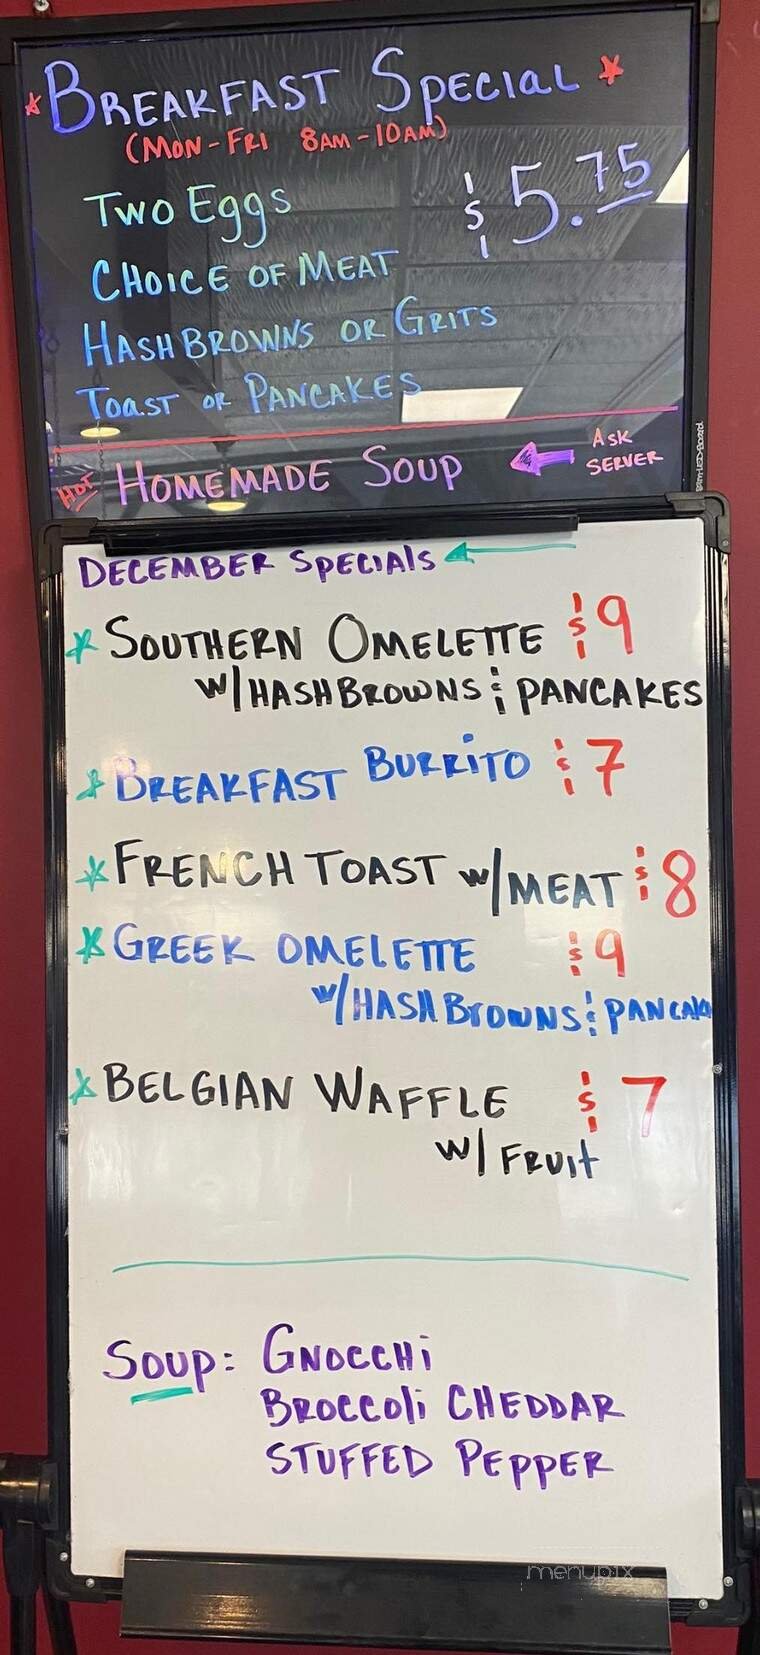 BREAKFAST SPECIAL
(MON-FRI 8AM-10AM)
TWO EGGS $5.75
CHOICE OF MEAT
HASHBROWNS OR GRITS
TOAST OR PANCAKES
HOT HOMEMADE SOUP ASK SERVER
DECEMBER SPECIALS
SOUTHERN OMELETTE $9
W/HASHBROWNS & PANCAKES
BREAKFAST BURRITO $7
FRENCH TOAST W/MEAT $8
GREEK OMELETTE $9
W/HASHBROWNS & PANCAK
BELGIAN WAFFLE $7
W/ FRUIT
SOUP: GNOCCHI
BROCCOLI CHEDDAR
STUFFED PEPPER
menupix